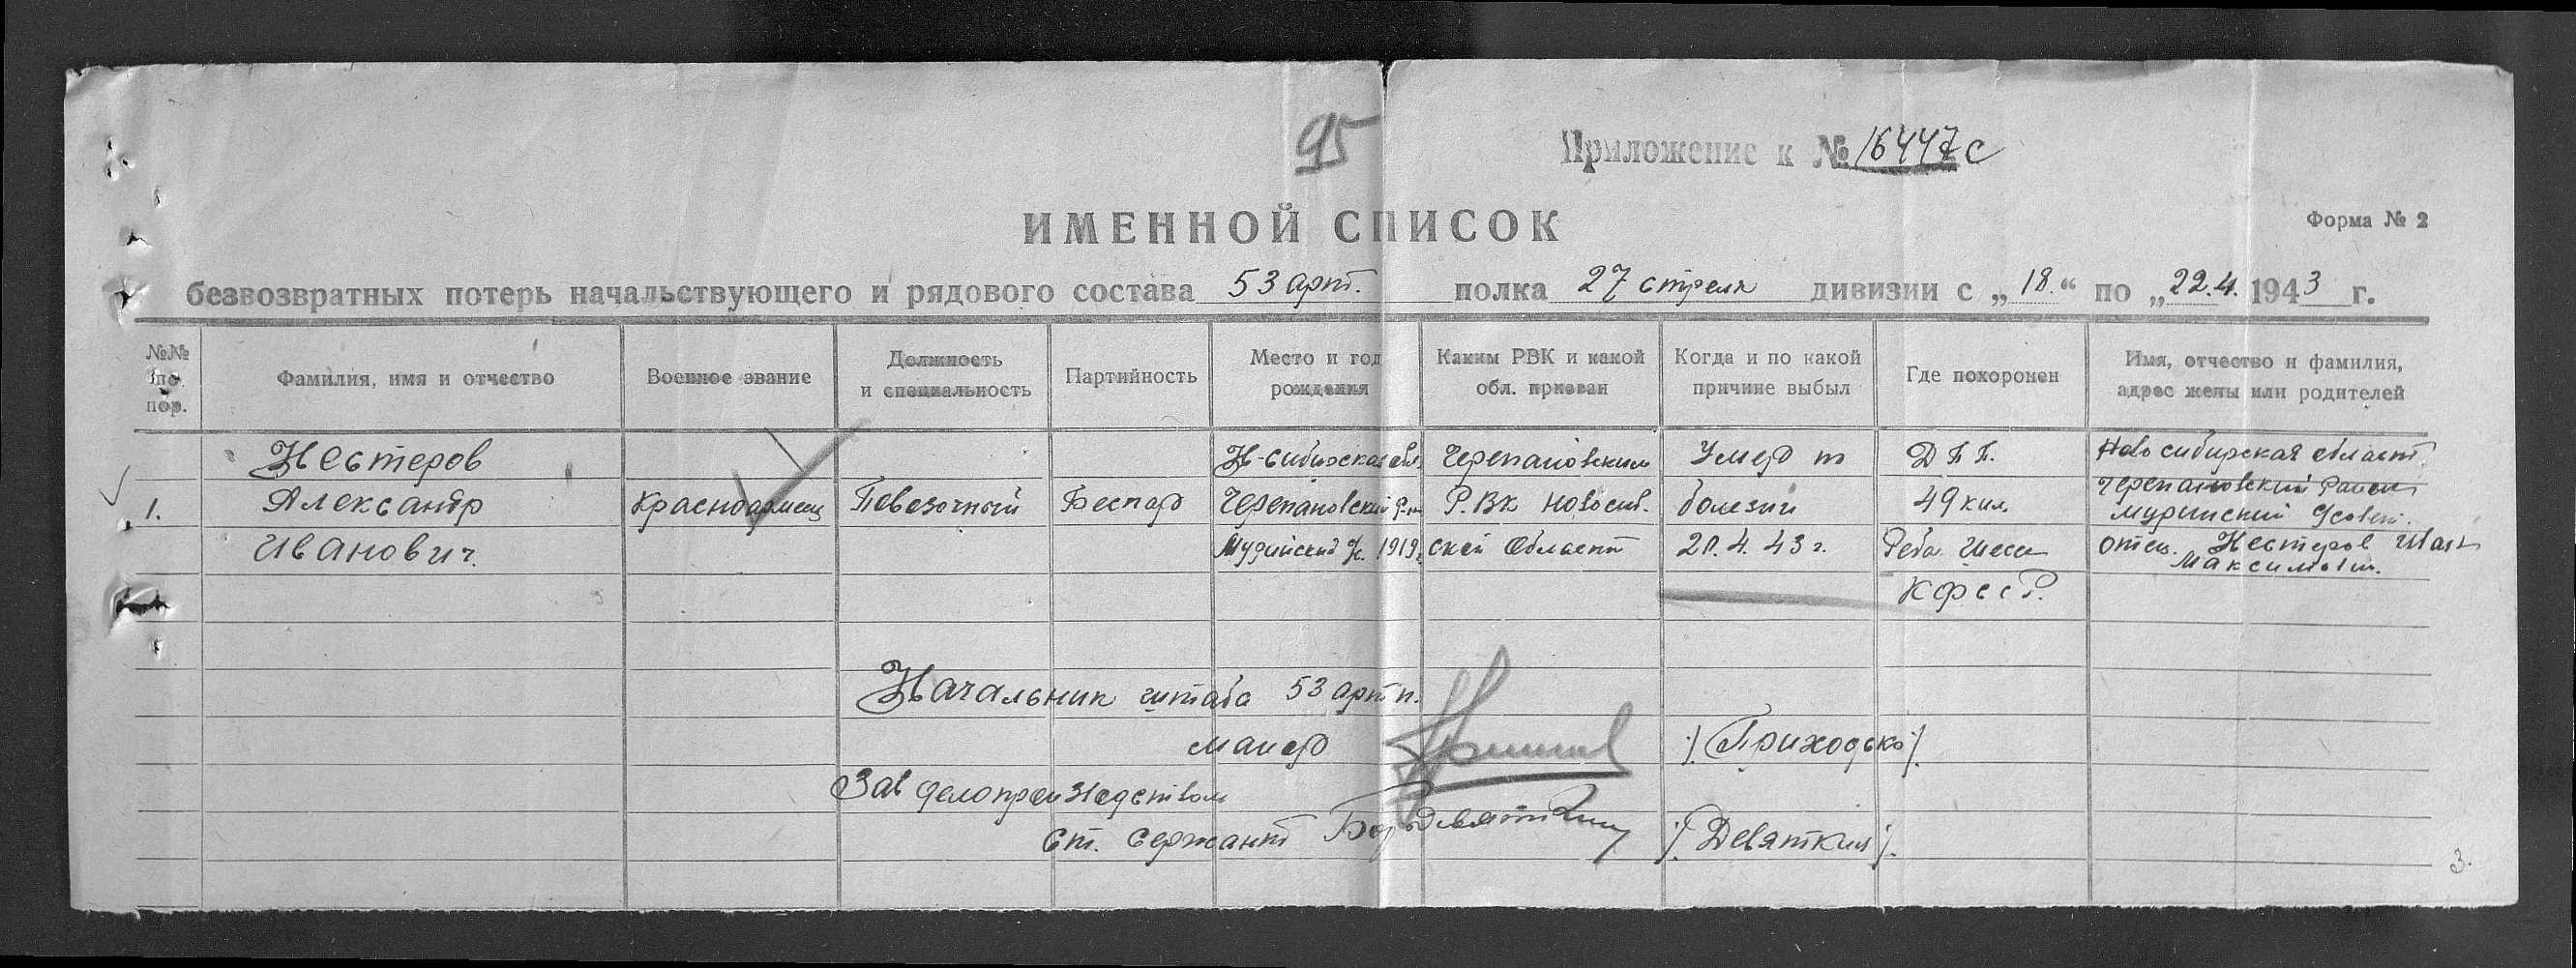 95
Приложение к № 16447с
ИМЕННОЙ СПИСОК
Форма № 2
безвозвратных потерь начальствующего и рядового состава 53 арт. полка 27 стрелк дивизии с „18.“ по „22.4. 1943 г.
№№ по пор.
Фамилия, имя и отчество
Военное звание
Должность и специальность
Партийность
Место и год рождения
Каким РВК и какой обл. призван
Когда и по какой причине выбыл
Где похоронен
Имя, отчество и фамилия, адрес жены или родителей
1.
Нестеров
Александр
Иванович.
Красноармеец
Повозочный
Беспар
Н-сибирская обл.
Черепановский р-н
1919г.
Черепановским
Р.ВК Новосиб.
ской Области
Умер от
болезни
20.4.43г.
Д П П.
49 кил.
Шоссе
КФССР.
Новосибирская област.
Черепановский Район
отец. Нестеров Иван
Максимович.
Начальник штаба 53 артп.
майор
/Приходько/.
Зав делопроизводством
Ст. сержант
/Девяткин/.
3.